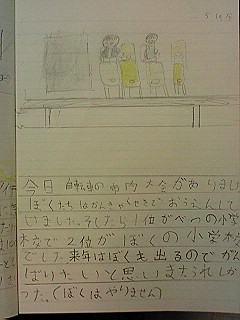 今日自転車の市内大会がありまし
ぼくたちはかんきゃくせきでおうえんして
いました。そしたら1位がべつの小学
校で2位がぼくの小学校
でした。来年はぼくも出るのでがん
ばりたいと思います。うれしか
った。(ぼくはやりません)